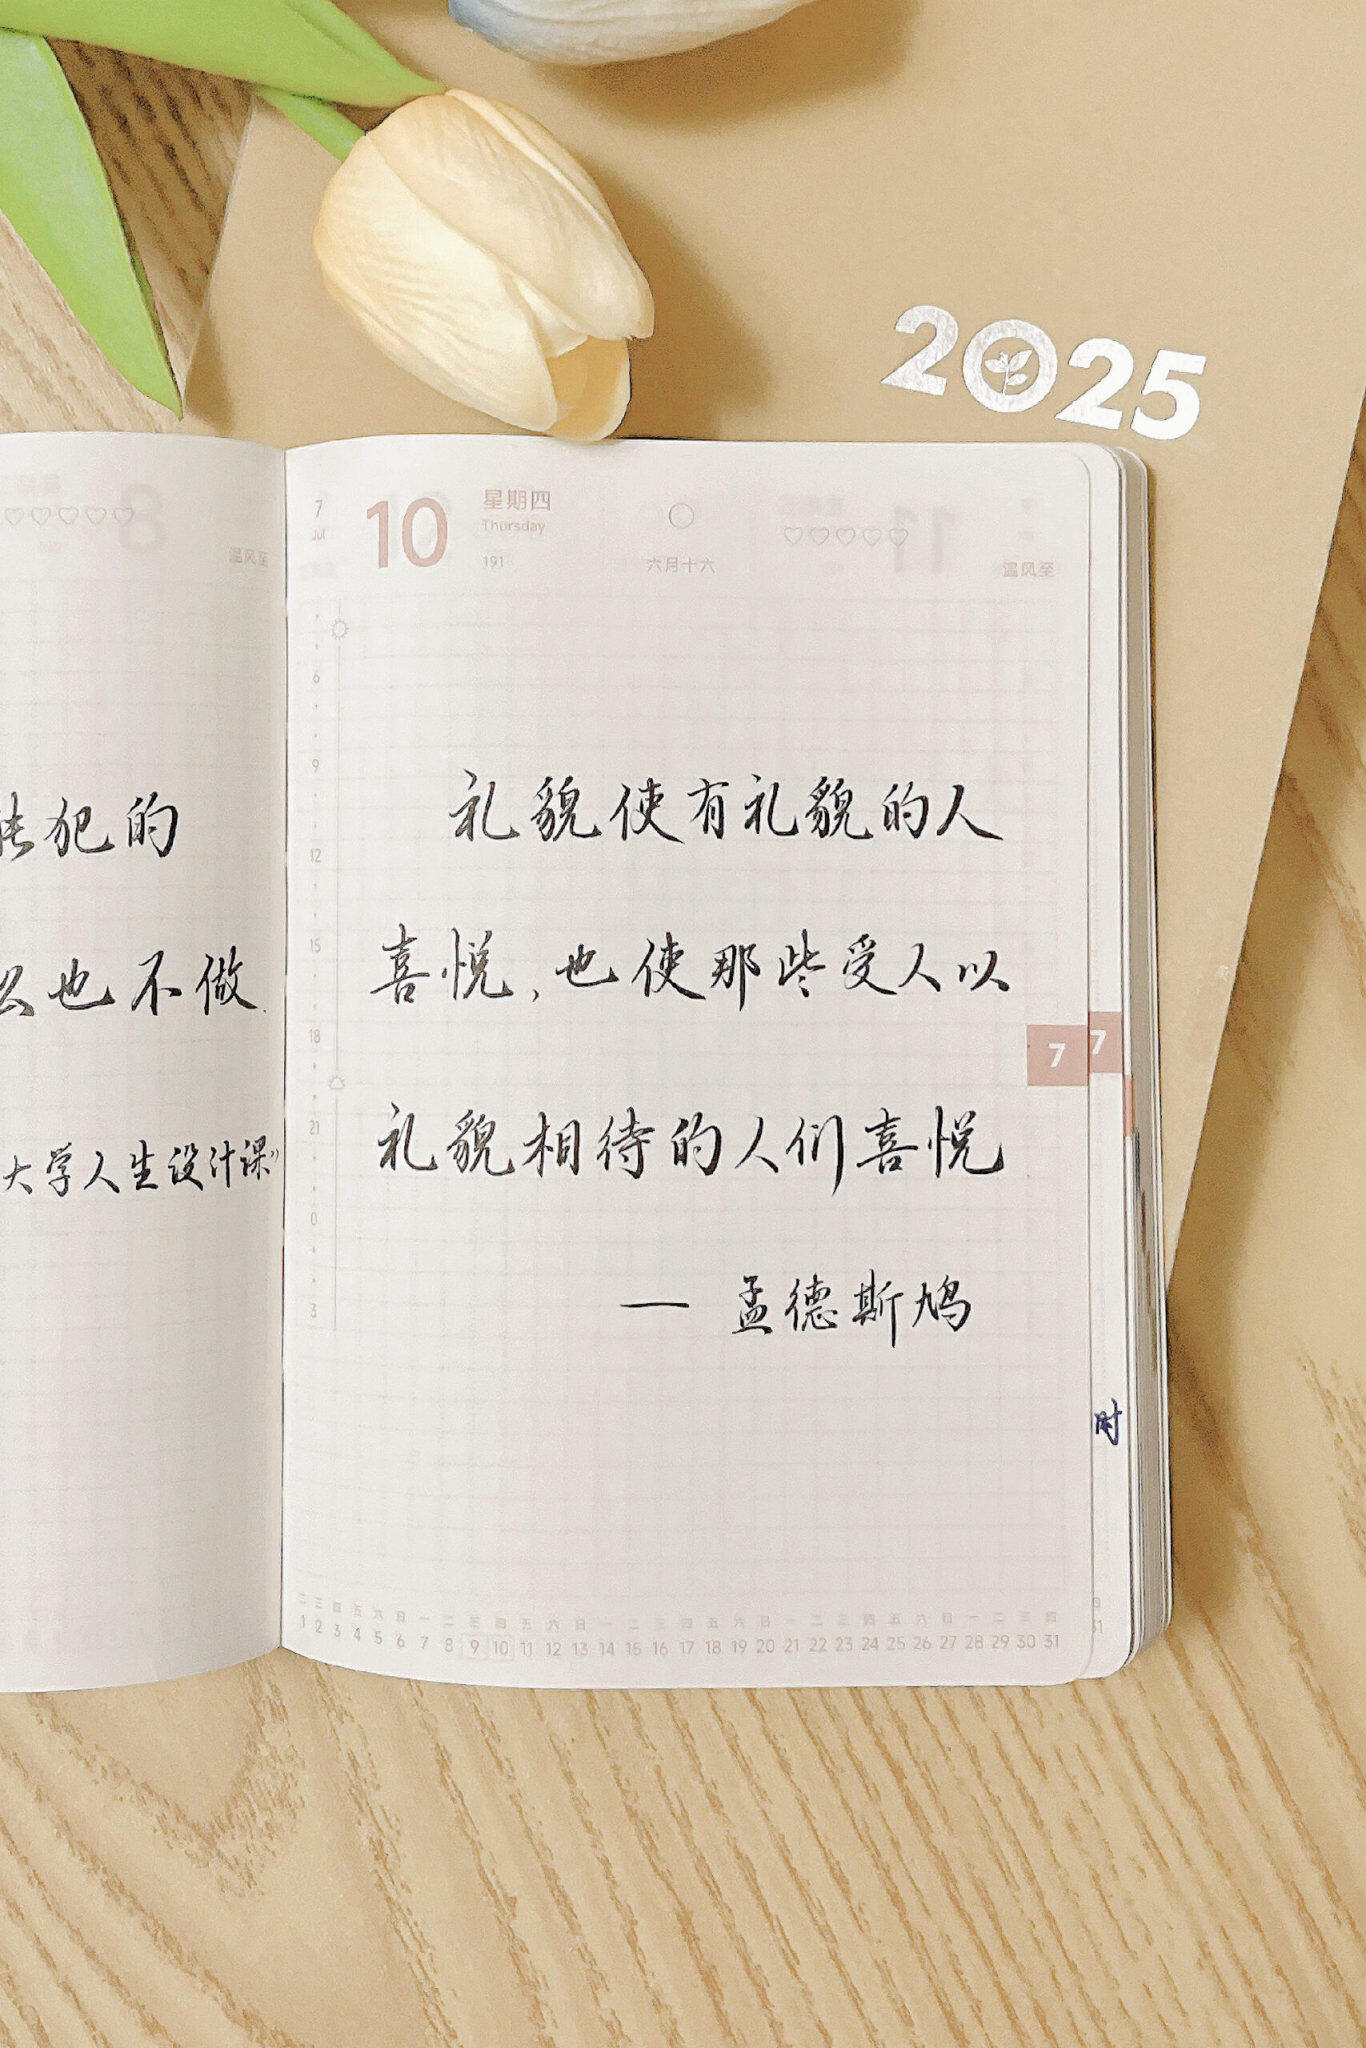 2025
温风至
犯的
也不做.
大学人生设计课》
7
Jul
10
星期四
Thursday
191
六月十六
温风至
6
9
12
15
18
21
0
3
礼貌使有礼貌的人
喜悦,也使那些受人以
礼貌相待的人们喜悦
— 孟德斯鸠
7
7
时
二 三 四 五 六 日 一 二 三 四 五 六 日 一 二 三 四 五 六 日 一 二 三 四 五 六 日 一 二 三 四
1 2 3 4 5 6 7 8 9 10 11 12 13 14 15 16 17 18 19 20 21 22 23 24 25 26 27 28 29 30 31
31